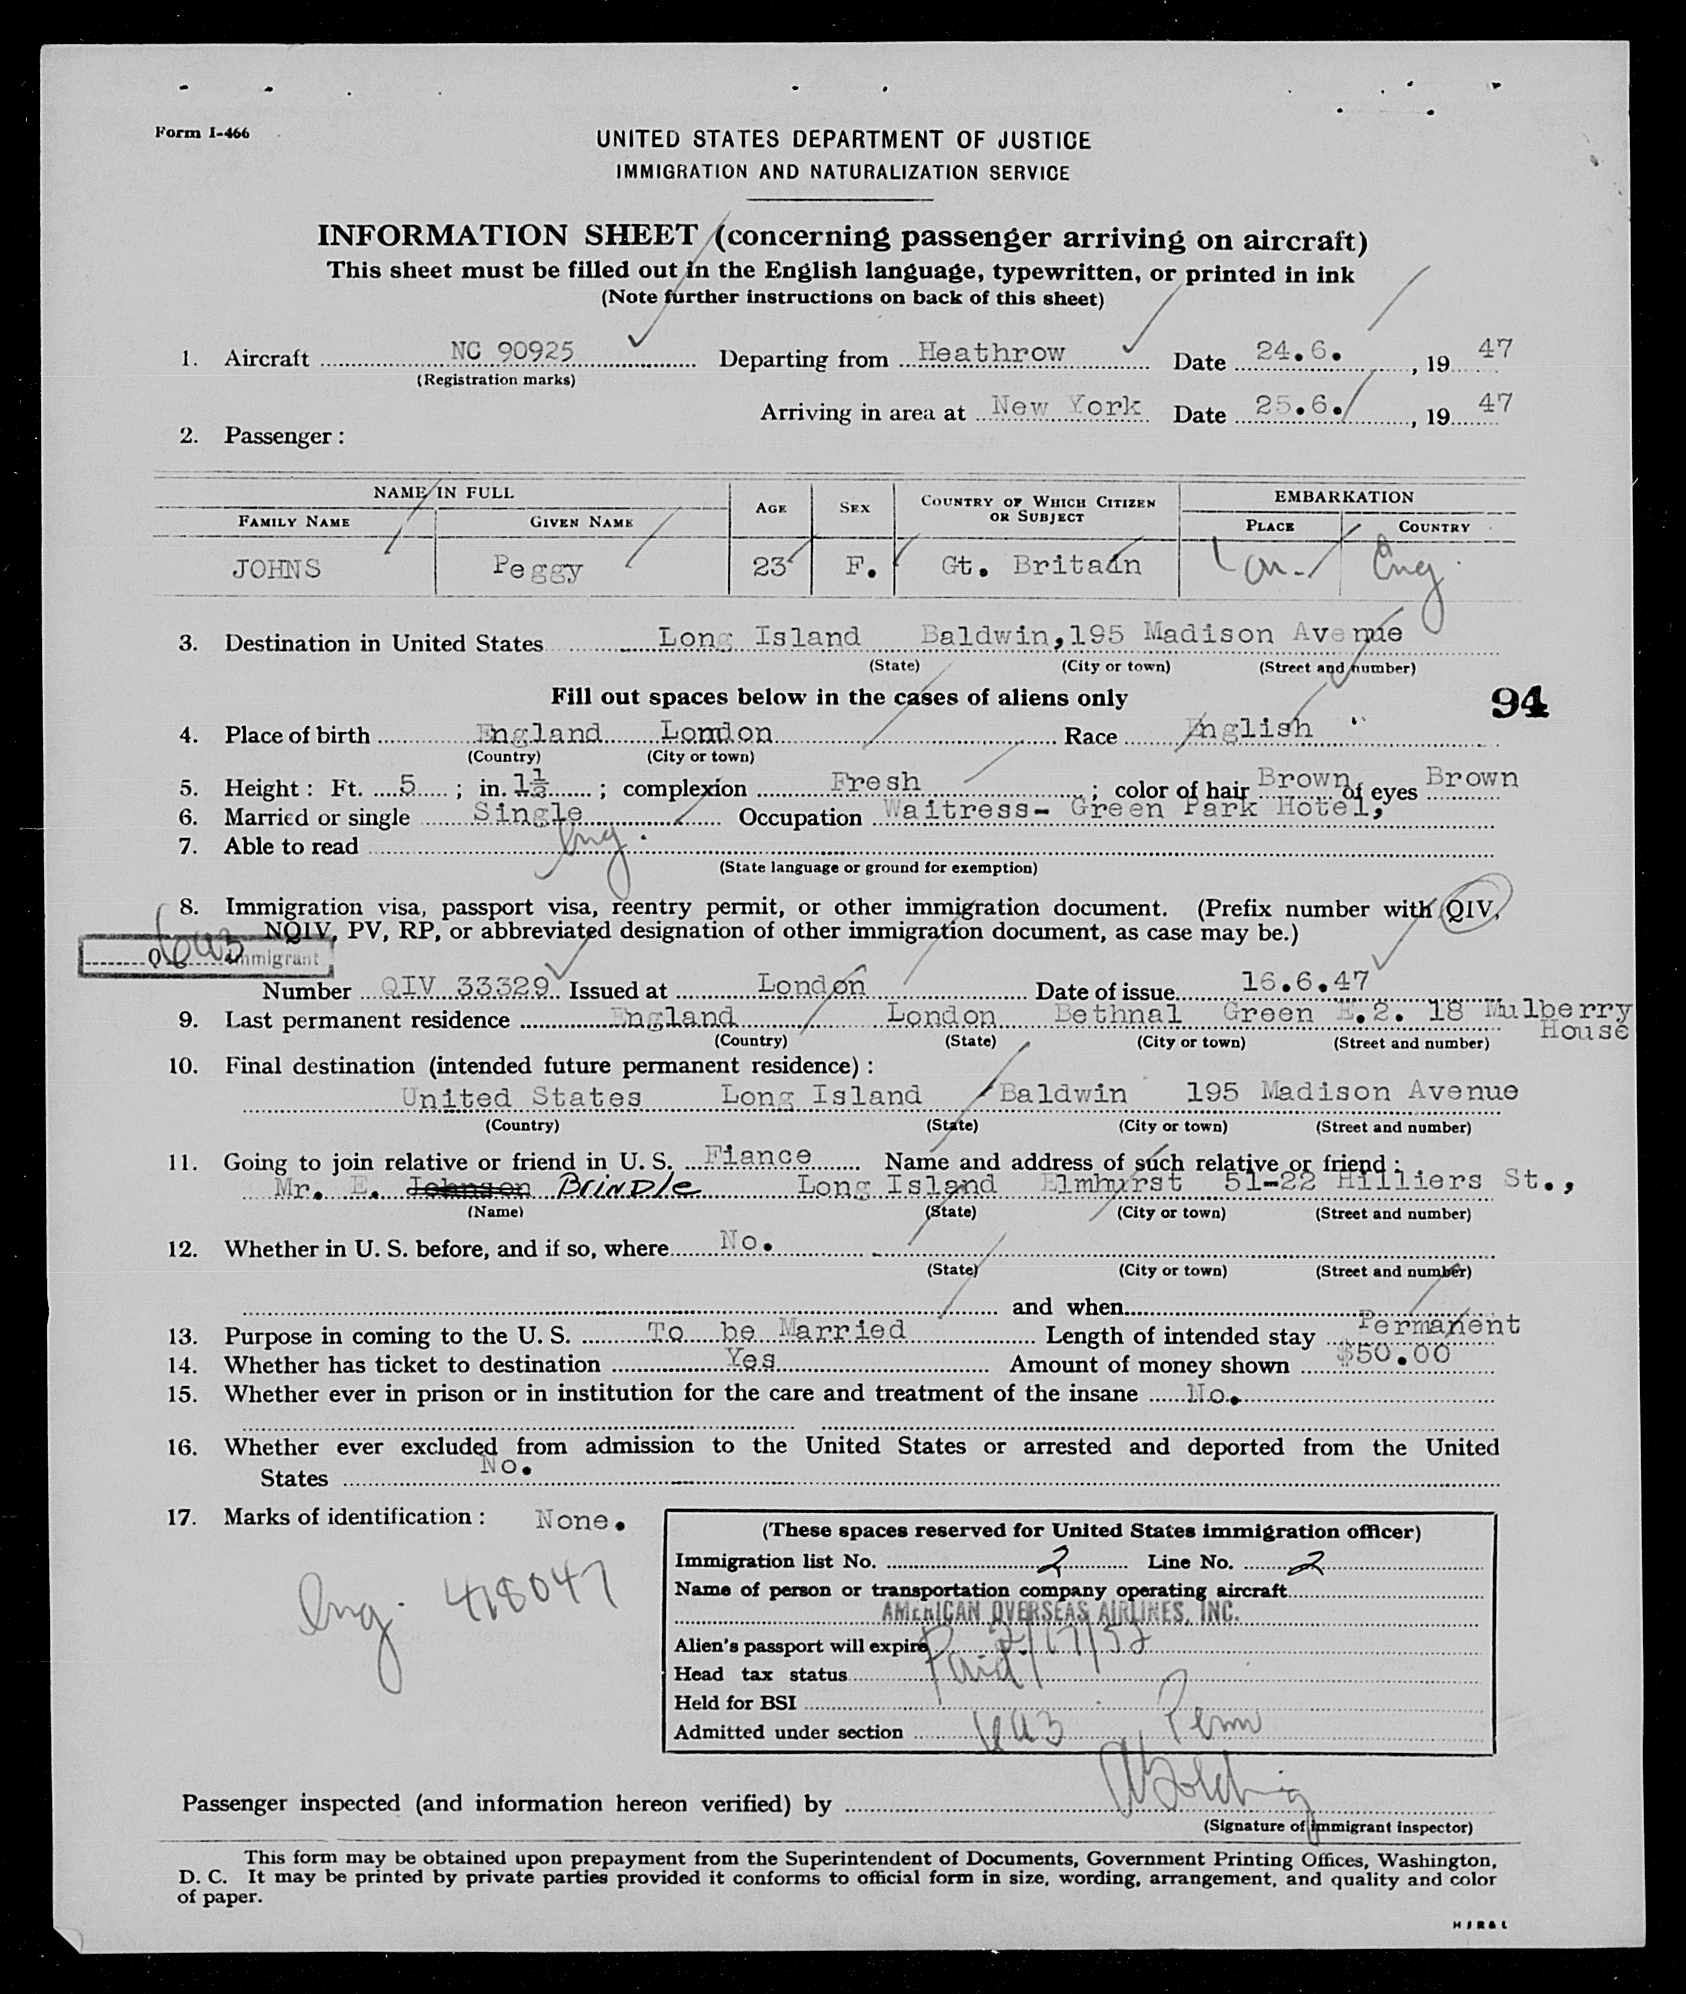 Form I-466
UNITED STATES DEPARTMENT OF JUSTICE
IMMIGRATION AND NATURALIZATION SERVICE
INFORMATION SHEET (concerning passenger arriving on aircraft)
This sheet must be filled out in the English language, typewritten, or printed in ink
(Note further instructions on back of this sheet)
1. Aircraft NC 90925 Departing from Heathrow Date 24.6. , 19 47
(Registration marks)
Arriving in area at New York Date 25.6. , 19 47
2. Passenger :
NAME IN FULL AGE SEX COUNTRY OF WHICH CITIZEN OR SUBJECT EMBARKATION
FAMILY NAME GIVEN NAME PLACE COUNTRY
JOHNS Peggy 23 F. Gt. Britain Lon. Eng.
3. Destination in United States Long Island Baldwin, 195 Madison Avenue
(State) (City or town) (Street and number)
Fill out spaces below in the cases of aliens only
94
4. Place of birth England London Race English
(Country) (City or town)
5. Height : Ft. 5 ; in. 1½ ; complexion Fresh ; color of hair Brown of eyes Brown
6. Married or single Single Occupation Waitress- Green Park Hotel,
7. Able to read Eng.
(State language or ground for exemption)
8. Immigration visa, passport visa, reentry permit, or other immigration document. (Prefix number with QIV,
NQIV, PV, RP, or abbreviated designation of other immigration document, as case may be.)
Number QIV 33329 Issued at London Date of issue 16.6.47
9. Last permanent residence England London Bethnal Green E.2. 18 Mulberry
House
(Country) (State) (City or town) (Street and number)
10. Final destination (intended future permanent residence) :
United States Long Island Baldwin 195 Madison Avenue
(Country) (State) (City or town) (Street and number)
11. Going to join relative or friend in U. S. Fiance Name and address of such relative or friend :
Mr. E. Johnson Brindle Long Island Elmhurst 51-22 Hilliers St.,
(Name) (State) (City or town) (Street and number)
12. Whether in U. S. before, and if so, where No.
(State) (City or town) (Street and number)
and when
13. Purpose in coming to the U. S. To be Married Length of intended stay Permanent
14. Whether has ticket to destination Yes Amount of money shown $50.00
15. Whether ever in prison or in institution for the care and treatment of the insane No.
16. Whether ever excluded from admission to the United States or arrested and deported from the United
States No.
17. Marks of identification : None.
Eng. 418047
(These spaces reserved for United States immigration officer)
Immigration list No. 2 Line No. 2
Name of person or transportation company operating aircraft
AMERICAN OVERSEAS AIRLINES, INC.
Alien's passport will expire 2/17/52
Head tax status Paid
Held for BSI
Admitted under section 6A3 Perm
Passenger inspected (and information hereon verified) by
(Signature of immigrant inspector)
This form may be obtained upon prepayment from the Superintendent of Documents, Government Printing Offices, Washington,
D. C. It may be printed by private parties provided it conforms to official form in size, wording, arrangement, and quality and color
of paper.